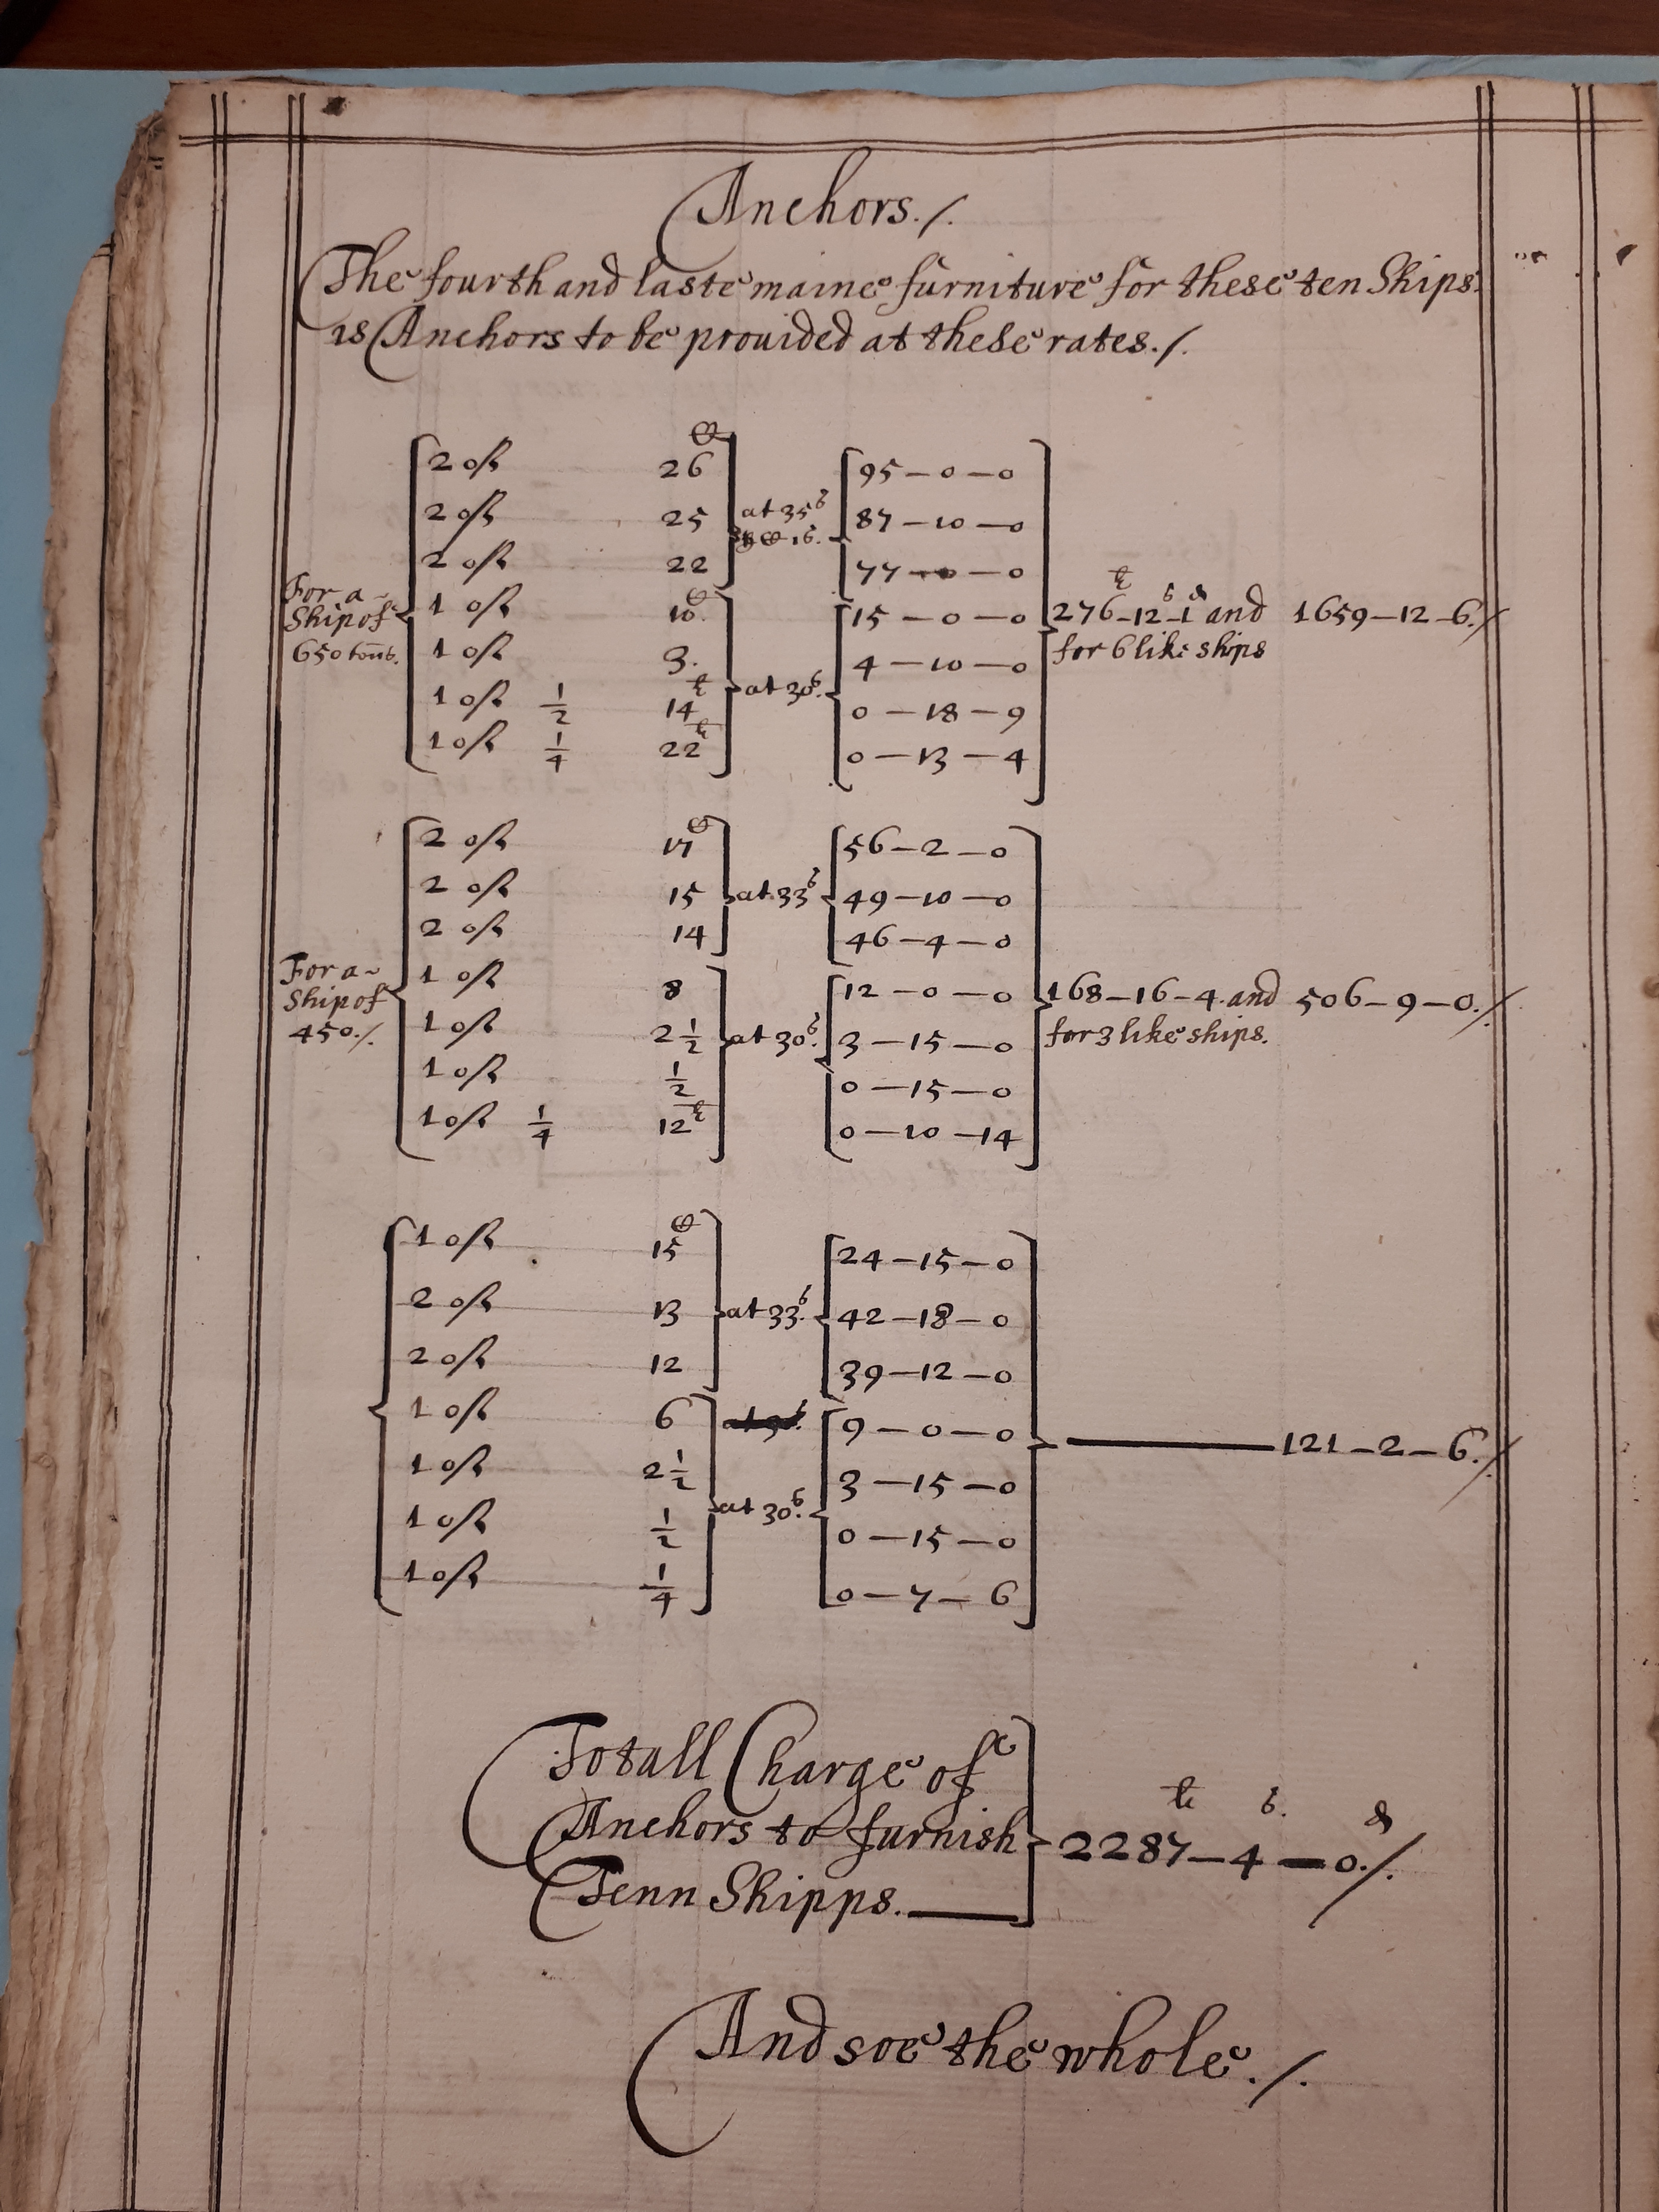 Anchors./.
The fourth and laste maine furniture for these ten Ships.
is Anchors to be prouided at these rates./.
For a Ship of 650 tonns.
2 of 26 95 – 0 – 0
2 of 25 at 35s 87 – 10 – 0
2 of 22 77 – 0 – 0
1 of 10. 15 – 0 – 0
276 – 12 – 1 and 1659 – 12 – 6./
for 6 like ships
1 of 3. at 30s. 4 – 10 – 0
1 of 1/2 14 0 – 18 – 9
1 of 1/4 22 0 – 13 – 4
For a Ship of 450./.
2 of 17 56 – 2 – 0
2 of 15 at 33s 49 – 10 – 0
2 of 14 46 – 4 – 0
1 of 8 12 – 0 – 0
168 – 16 – 4. and 506 – 9 – 0./.
for 3 like ships.
1 of 2 1/2 at 30s. 3 – 15 – 0
1 of 1/2 0 – 15 – 0
1 of 1/4 12 0 – 10 – 14
1 of 15 24 – 15 – 0
2 of 13 at 33s. 42 – 18 – 0
2 of 12 39 – 12 – 0
1 of 6 9 – 0 – 0
121 – 2 – 6./.
1 of 2 1/2 3 – 15 – 0
1 of 1/2 at 30s. 0 – 15 – 0
1 of 1/4 0 – 7 – 6
Totall Charge of
Anchors to furnish 2287 – 4 – 0./.
Tenn Shipps.
And soe the whole./.